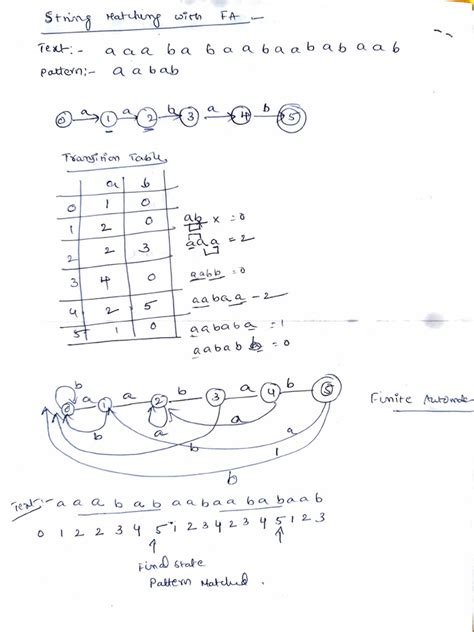 String Matching with FA
Text:- a a a b a b a a b a a b a b a a b
Pattern:- a a b a b
0 a 1 a 2 b 3 a 4 b 5
Transition Table
a b
0 1 0
1 2 0 ab x = 0
2 2 3 aaa = 2
3 4 0 aabb = 0
4 2 5 aabaa - 2
5 1 0 aababa = 1
aabab b = 0
b
0 a 1 a 2 b 3 a 4 b 5 Finite
b a a a
b 1
b
Text:- a a a b a b a a b a a b a b a a b
0 1 2 2 3 4 5 1 2 3 4 2 3 4 5 1 2 3
Final State
Pattern Matched.